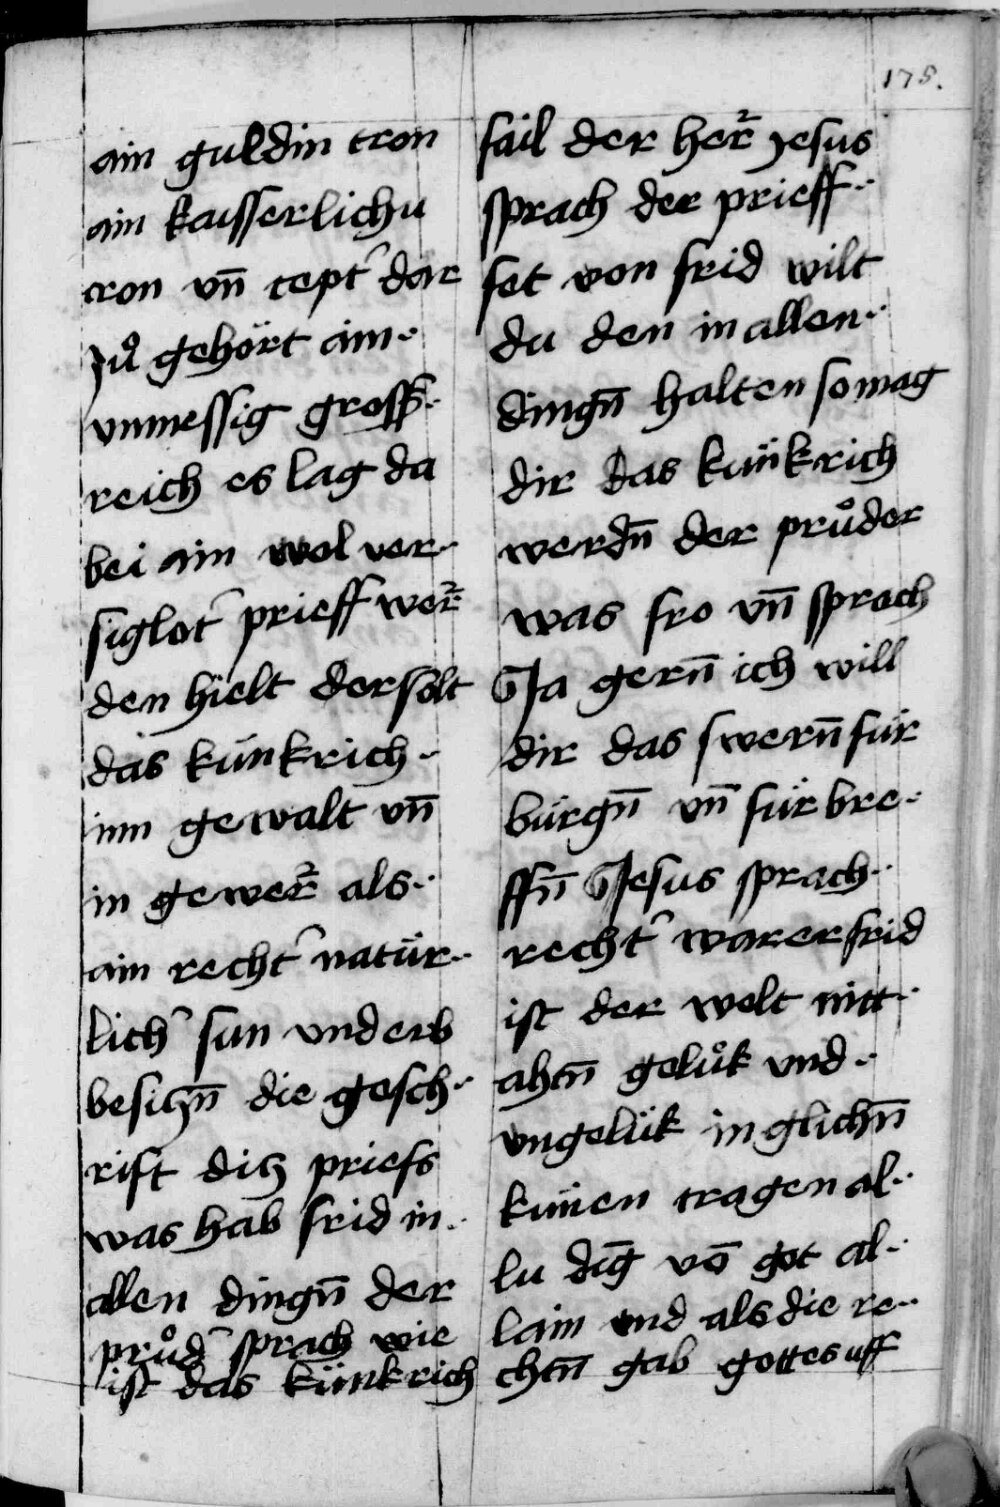 175.
ain guldin cron
ain kaisserlichu
cron vn̄ cept᷑ dar
zuͦ gehört ain
vnmessig gross
reich es lag da
bei ain wol ver
siglot᷑ prieff wer᷑
den hielt der solt
das künkrich
inn gewalt vn̄
in gewer᷑ als
ain recht᷑ natür
lich᷑ sun vnd erb
besiczn̄ die gesch
rift dicz priefs
was hab frid in
allen dingn̄ der
pruͦd᷑ sprach wie
ist das künkrich
fail der her᷑ Jesus
sprach der prieff
set von frid wilt
du den in allen
dingn̄ halten so mag
dir das künkrich
werdn̄ der pruͦder
was fro vn̄ sprach
Ja gern̄ ich will
dir das swern̄ für
bürgn̄ vn̄ für bre
ffn̄ Jesus sprach
recht᷑ warer frid
ist der welt nitt
ahtn̄ geluͦk vnd
vngelük in glichn̄
künen tragen al
lu dīg vō got al
lain vnd als die re
chtn̄ gab gottes uff